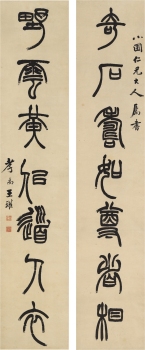 小園仁兄大人屬書
奇石壽如尊者相
野雲黃似道人衣
孝禹王瓘